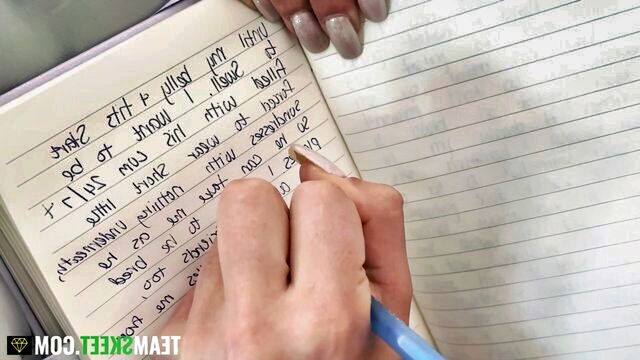 Until my belly & tits start
to swell. I want to be
filled with his cum 24/7 &
forced to wear short little
sundresses with nothing underneath,
so he can take me as he
I to be bred
friends too,
me from
TEAMSKEET.COM